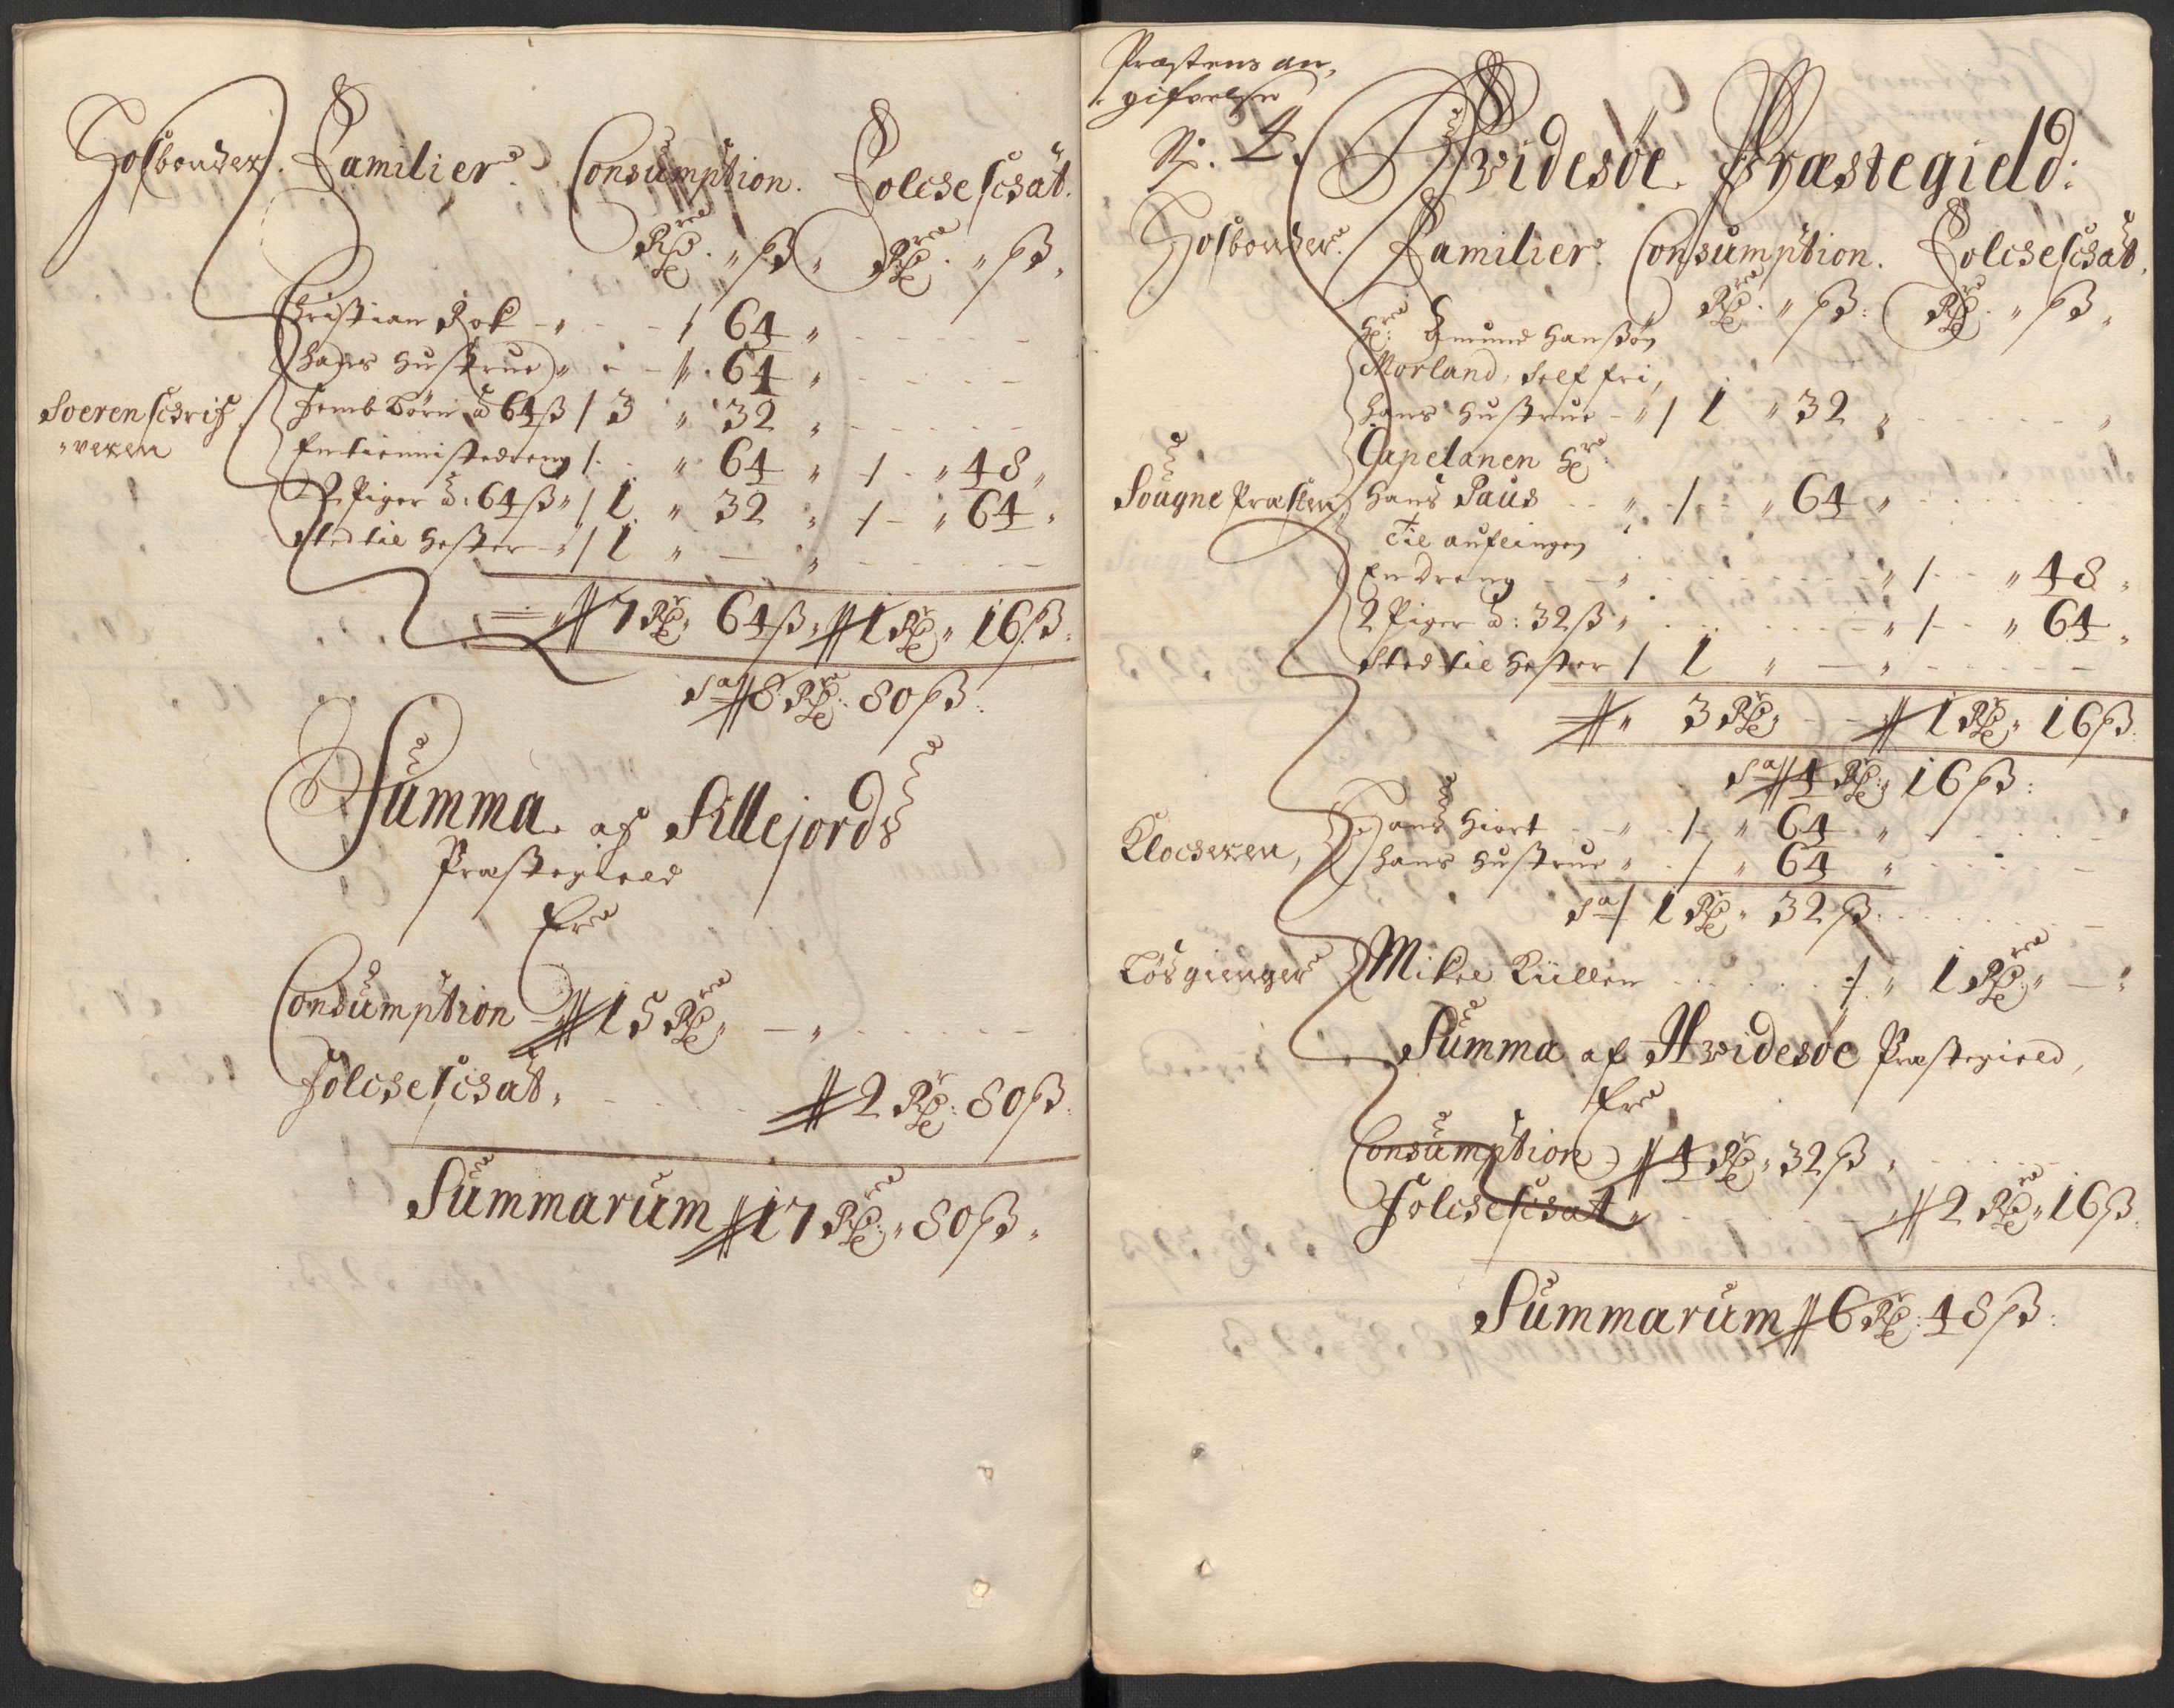 Hosbonder. Familier Consumption. Folcheschat.
Rdr. „ ß „ Rdr. „ ß „
Christian Rok - „ - - / 64 „
hans Hustrue „ - - /„ 64 „
Soerenschrifveren
femb Börn à 64 ß / 3 „ 32 „
En tiennistedreng / . „ 64 „ / . „ 48 „
2 Piger à: 64 ß „ / 1 „ 32 „ / - „ 64 „
Sted til Hester - „ / 1 „ - „
„ 7 Rd „ 64 ß „ 1 Rd „ 16 ß.
Sa 8 Rdr. 80 ß.
Summa af Sillejords
Præstegield
Er
Consumption - 15 Rdr „ - „
Folcheschat. 2 Rdr: 80 ß.
Summarum 17 Rdr. „ 80 ß „
Præstens an-
gifvelse
No. 4.
Hvidesöe Præstegield:
Hosbonder. Familier. Consumption. Folcheschat.
Rdr. „ ß: Rdr „ ß „
Hr: Amund Hanßön
Morland, Self fri,
hans Hustrue - „ / 1 „ 32 „
Capelanen Hr:
Sougne Præsten, Hans Paus - - „ - / - „ 64 „
Til auflingen
En dreng - - „ „ / - - „ 48 „
2 Piger à: 32 ß „ „ / - - „ 64 „
Sted til Hester / 1 „ - „
„ 3 Rdr „ - - 1 Rdr „ 16 ß.
Sa 4 Rdr „ 16 ß:
Klocheren, Hans Hiort - - „ - / - „ 64 „
hans Hustrue „ - / „ 64 „
Sa / 1 Rdr „ 32 ß.
Lösgienger Mikel Küllen / „ 1 Rdr „ - „
Summa af Hvidesöe Præstegield,
Er
Consumption 4 Rdr „ 32 ß „
Folcheschat „ 2 Rdr „ 16 ß.
Summarum 6 Rdr: 48 ß: